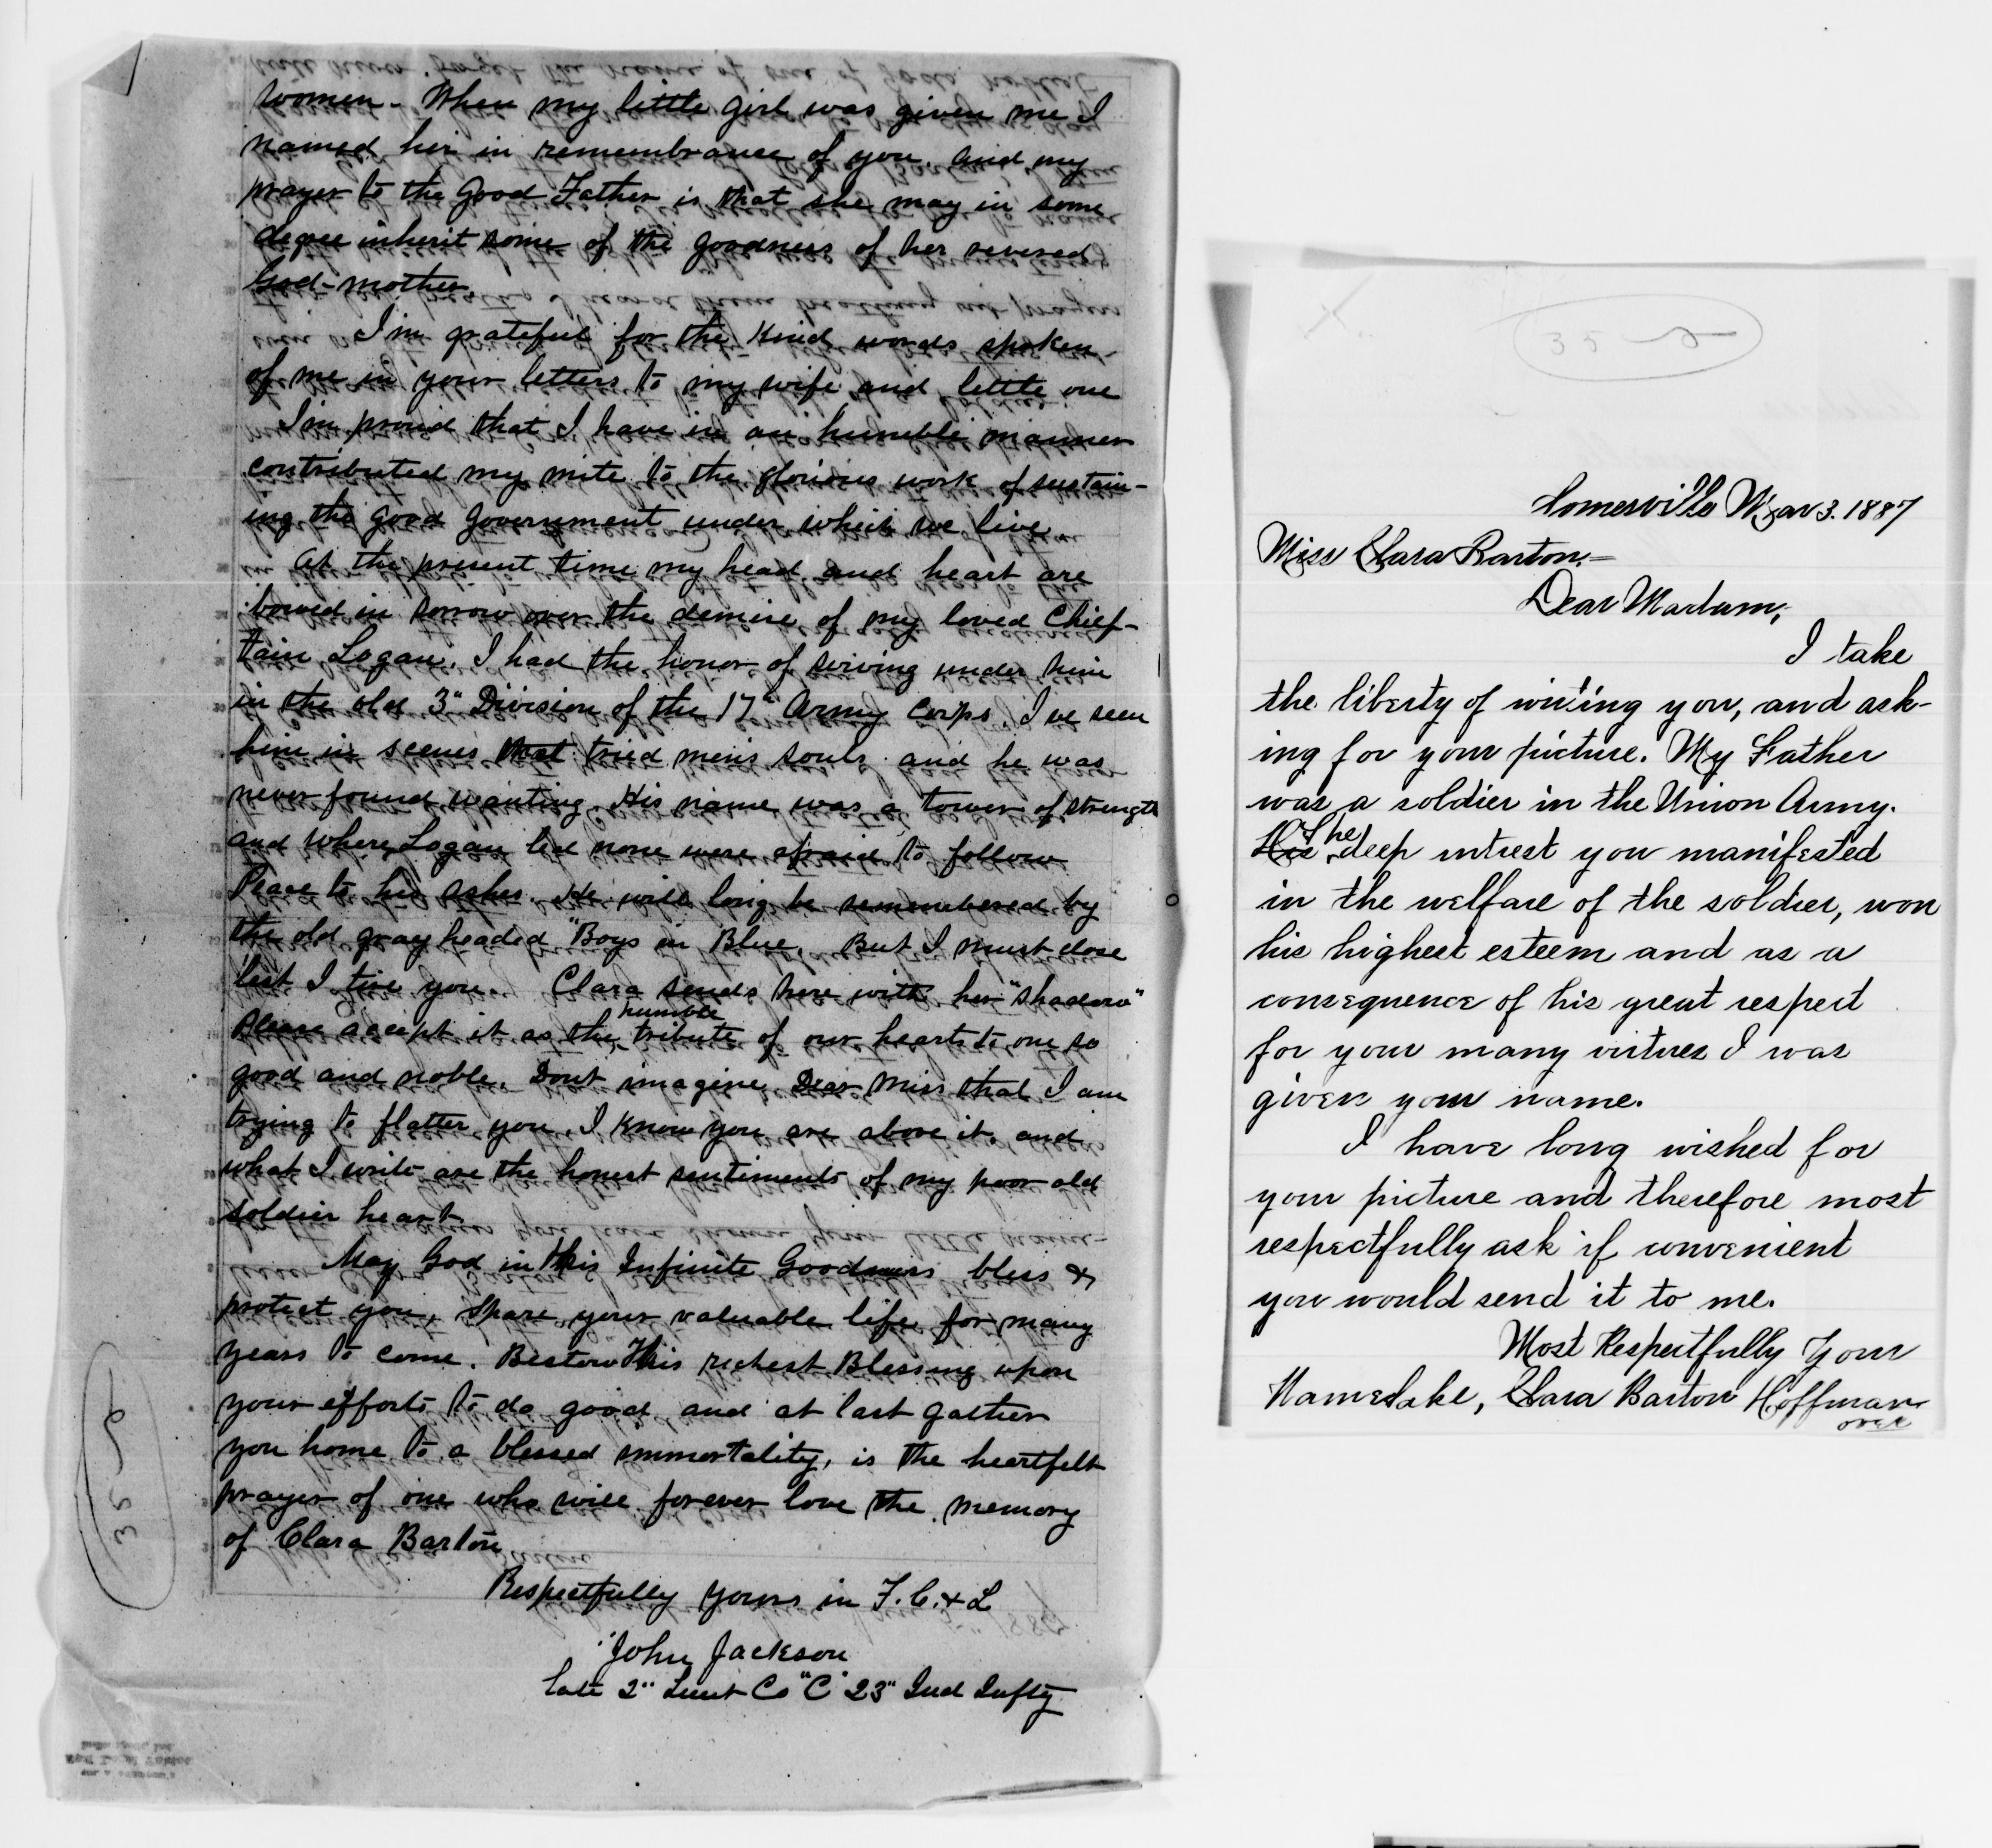 women - When my little girl was given me I
named her in remembrance of you. And my
prayer to the Good Father is that she may in some
degree inherit some of the goodness of her revered
God-mother
I'm grateful for the kind words spoken
of me in your letters to my wife and little one
I'm proud that I have in an humble manner
contributed my mite to the glorious work of sustain-
ing the good Government under which we live
At the present time my head and heart are
bowed in sorrow over the demise of my loved Chief-
tain Logan. I had the honor of serving under him
in the old 3" Division of the 17" Army Corps. I've seen
him in scenes that tried men's souls and he was
never found wanting. His name was a tower of strength
and where Logan led none were afraid to follow
Peace to his ashes. He will long be remembered by
the old gray headed "Boys in Blue. But I must close
lest I tire you. Clara sends here with her "shadow"
Please accept it as the humble tribute of our hearts to one so
good and noble. Dont imagine Dear Miss that I am
trying to flatter you. I know you are above it. and
what I write are the honest sentiments of my poor old
soldier heart.
May God in His Infinite Goodness bless &
protect you, spare your valuable life for many
years to come. Bestow His richest Blessing upon
your efforts to do good and at last gather
you home to a blessed immortality, is the heartfelt
prayer of one who will forever love the memory
of Clara Barton
Respectfully yours in F. C. & L
John Jackson
late 2" Lieut Co "C" 23" Ind Infty
35
35
Somerville Mar 3. 1887
Miss Clara Barton.-
Dear Madam;
I take
the liberty of writing you, and ask-
ing for your picture. My Father
was a soldier in the Union Army.
His The deep intrest you manifested
in the welfare of the soldier, won
his highest esteem and as a
consequence of his great respect
for your many virtues I was
given your name.
I have long wished for
your picture and therefore most
respectfully ask if convenient
you would send it to me.
Most Respectfully Your
Namesake, Clara Barton Hoffman
over